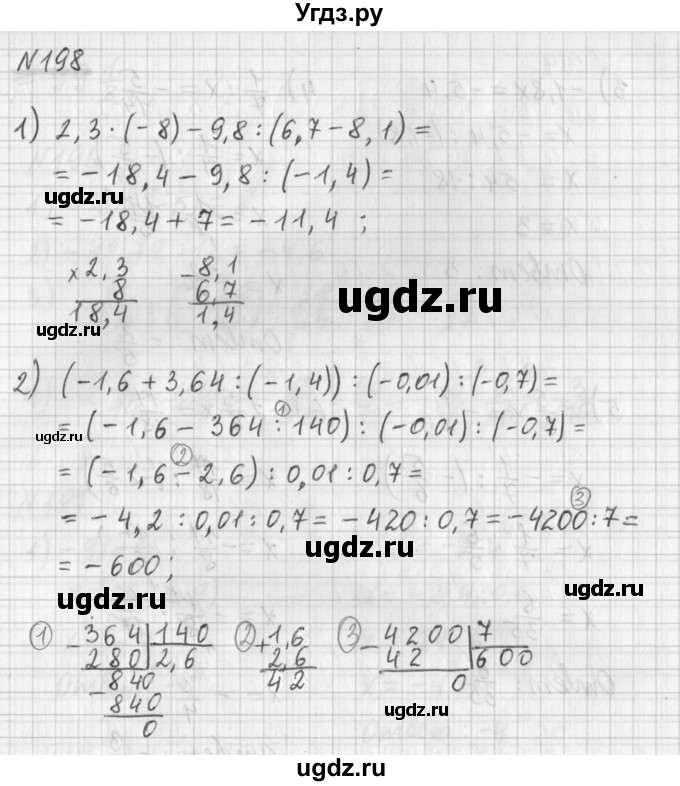 Угдз.ру
N198
1) 2,3 · (-8) - 9,8 : (6,7 - 8,1) =
= -18,4 - 9,8 : (-1,4) =
ugdz.ru
= -18,4 + 7 = -11,4 ;
× 2,3   - 8,1
8   6,7
18,4   1,4
ugdz.ru
ugdz.ru
2) (-1,6 + 3,64 : (-1,4)) : (-0,01) : (-0,7) =
① 
= (-1,6 - 364 : 140) : (-0,01) : (-0,7) =
ugdz.ru
②
= (-1,6 - 2,6) : 0,01 : 0,7 =
③
= -4,2 : 0,01 : 0,7 = -420 : 0,7 = -4200 : 7 =
ugdz.ru
= -600 ;
ugdz.ru
ugdz.ru
① - 364 | 140   ② + 1,6   ③ - 4200 | 7
280 | 2,6   2,6   42 | 600
- 840   42   0
840
0
ugdz.ru
ugdz.ru